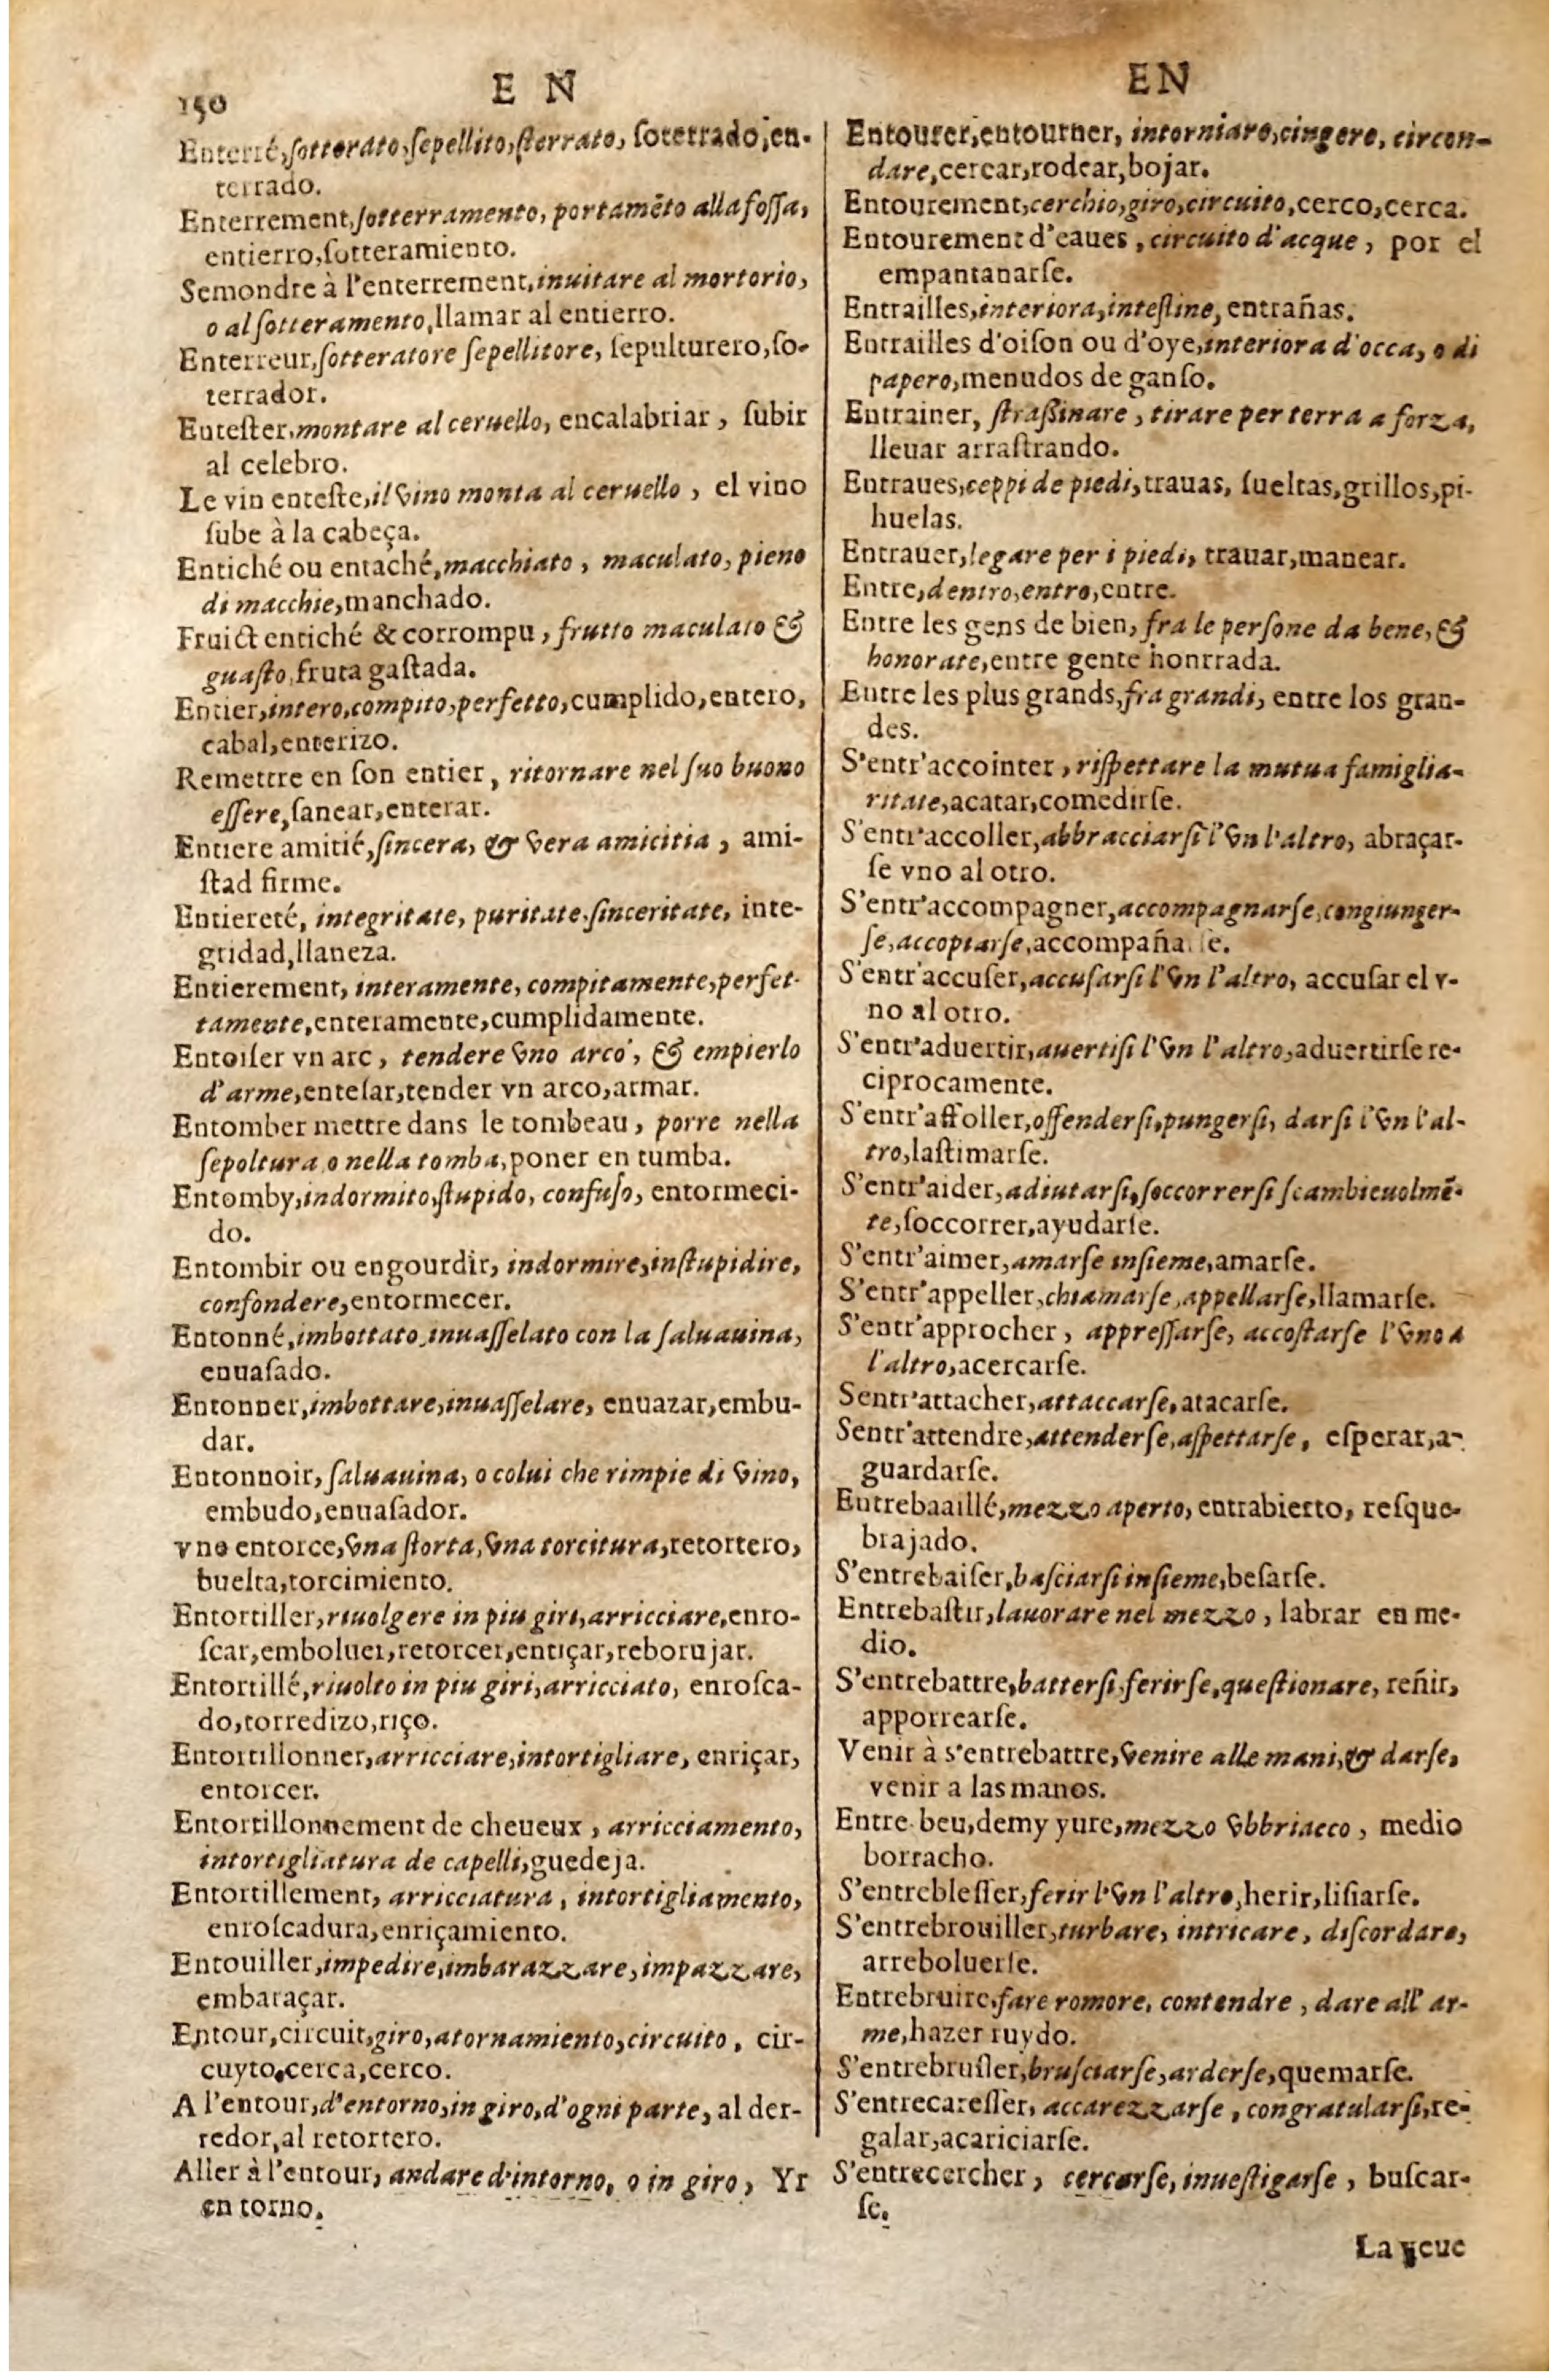 150
E N
Enterré, sotterato, sepellito, sterrato, soterrado, en-
terrado.
Enterrement, sotterramento, portamẽto alla fossa,
entierro, sotteramiento.
Semondre à l'enterrement, inuitare al mortorio,
o al sotteramento, llamar al entierro.
Enterreur, sotteratore sepellitore, sepulturero, so-
terrador.
Entester, montare al ceruello, encalabriar, subir
al celebro.
Le vin enteste, il vino monta al ceruello, el vino
sube à la cabeça.
Entiché ou entaché, macchiato, maculato, pieno
di macchie, manchado.
Fruict entiché & corrompu, frutto maculato &
guasto, fruta gastada.
Entier, intero, compito, perfetto, cumplido, entero,
cabal, enterizo.
Remettre en son entier, ritornare nel suo buono
essere, sanear, enterar.
Entiere amitié, sincera, & vera amicitia, ami-
stad firme.
Entiereté, integritate, puritate, sinceritate, inte-
gridad, llaneza.
Entierement, interamente, compitamente, perfet-
tamente, enteramente, cumplidamente.
Entoiser vn arc, tendere vno arco, & empierlo
d'arme, entesar, tender vn arco, armar.
Entomber mettre dans le tombeau, porre nella
sepoltura o nella tomba, poner en tumba.
Entomby, indormito, stupido, confuso, entormeci-
do.
Entombir ou engourdir, indormire, instupidire,
confondere, entormecer.
Entonné, imbottato, inuasselato con la saluauina,
enuasado.
Entonner, imbottare, inuasselare, enuazar, embu-
dar.
Entonnoir, saluauina, o colui che rimpie di vino,
embudo, enuasador.
vne entorce, vna storta, vna torcitura, retortero,
buelta, torcimiento.
Entortiller, riuolgere in piu giri, arricciare, enro-
scar, emboluer, retorcer, entiçar, reborujar.
Entortillé, riuolto in piu giri, arricciato, enrosca-
do, torredizo, riço.
Entortillonner, arricciare, intortigliare, enriçar,
entorcer.
Entortillonnement de cheueux, arricciamento,
intortigliatura de capelli, guedeja.
Entortillement, arricciatura, intortigliamento,
enroscadura, enriçamiento.
Entouiller, impedire, imbarazzare, impazzare,
embaraçar.
Entour, circuit, giro, atornamiento, circuito, cir-
cuyto, cerca, cerco.
A l'entour, d'entorno, in giro, d'ogni parte, al der-
redor, al retortero.
Aller à l'entour, andare d'intorno, o in giro, Yr
en torno.
EN
Entourer, entourner, intorniare, cingere, circon-
dare, cercar, rodear, bojar.
Entourement, cerchio, giro, circuito, cerco, cerca.
Entourement d'eaues, circuito d'acque, por el
empantanarse.
Entrailles, interiora, intestine, entrañas.
Entrailles d'oison ou d'oye, interiora d'occa, o di
papero, menudos de ganso.
Entrainer, strassinare, tirare per terra a forza,
lleuar arrastrando.
Entraues, ceppi de piedi, trauas, sueltas, grillos, pi-
huelas.
Entrauer, legare per i piedi, trauar, manear.
Entre, dentro, entro, entre.
Entre les gens de bien, fra le persone da bene, &
honorate, entre gente honrrada.
Entre les plus grands, fra grandi, entre los gran-
des.
S'entr'accointer, rispettare la mutua famiglia-
ritate, acatar, comedirse.
S'entr'accoller, abbracciarsi l'vn l'altro, abraçar-
se vno al otro.
S'entr'accompagner, accompagnarse, congiunger-
se, accoptarse, accompañarse.
S'entr'accuser, accusarsi l'vn l'altro, accusar el v-
no al otro.
S'entr'aduertir, auertisi l'vn l'altro, aduertirse re-
ciprocamente.
S'entr'affoller, offendersi, pungersi, darsi l'vn l'al-
tro, lastimarse.
S'entr'aider, adiutarsi, soccorrersi scambieuolmẽ-
te, soccorrer, ayudarse.
S'entr'aimer, amarse insieme, amarse.
S'entr'appeller, chiamarse, appellarse, llamarse.
S'entr'approcher, appressarse, accostarse l'vno a
l'altro, acercarse.
Sentr'attacher, attaccarse, atacarse.
Sentr'attendre, attenderse, aspettarse, esperar, a-
guardarse.
Entrebaaillé, mezzo aperto, entrabierto, resque-
brajado.
S'entrebaiser, basciarsi insieme, besarse.
Entrebastir, lauorare nel mezzo, labrar en me-
dio.
S'entrebattre, battersi, ferirse, questionare, reñir,
apporrearse.
Venir à s'entrebattre, venire alle mani, & darse,
venir a las manos.
Entre beu, demy yure, mezzo vbbriacco, medio
borracho.
S'entreblesser, ferir l'vn l'altro, herir, lisiarse.
S'entrebrouiller, turbare, intricare, discordare,
arreboluerse.
Entrebruire, fare romore, contendre, dare all' ar-
me, hazer ruydo.
S'entrebrusler, brusciarse, arderse, quemarse.
S'entrecaresser, accarezzarse, congratularsi, re-
galar, acariciarse.
S'entrecercher, cercarse, inuestigarse, buscar-
se.
La veue